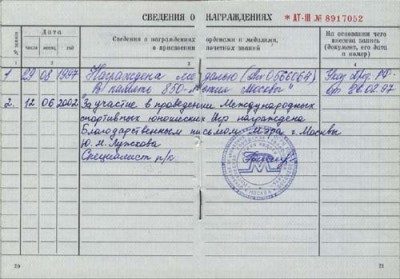 СВЕДЕНИЯ О НАГРАЖДЕНИЯХ * АТ-III № 8917052
№ записи
Дата
число
месяц
год
Сведения о награждениях орденами и медалями,
о присвоении почетных званий
На основании чего внесена запись (документ, его дата и номер)
1 2 3 4
1. 29 08 1997 Награждена медалью
В память 850-летия Москвы"
Указ През. РФ
от 26.02.97
2. 12 06 2002 За участие в проведении Международных
спортивных юношеских Игр награждена
Благодарственным письмом Мэра г. Москвы
Ю. М. Лужкова
Специалист